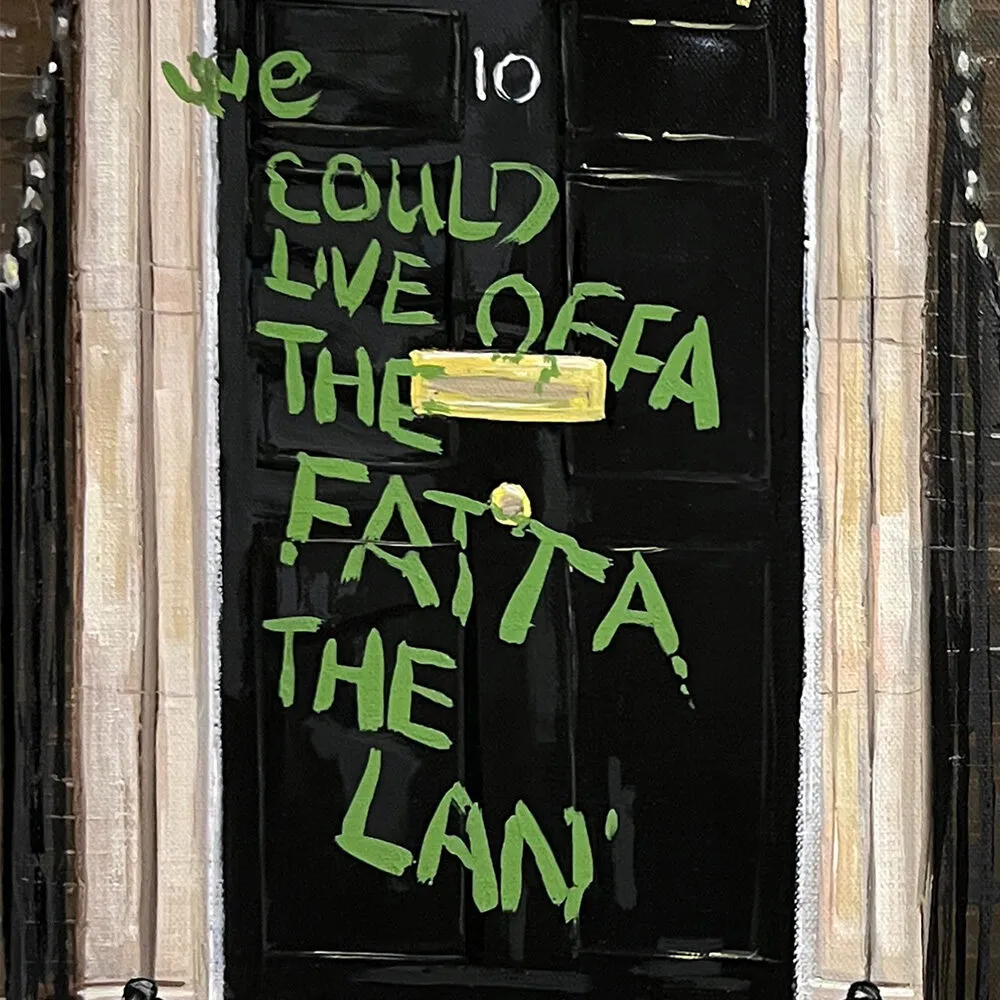 10
we
COULD
LIVE OFFA
THE
FATTA
THE
LAN'